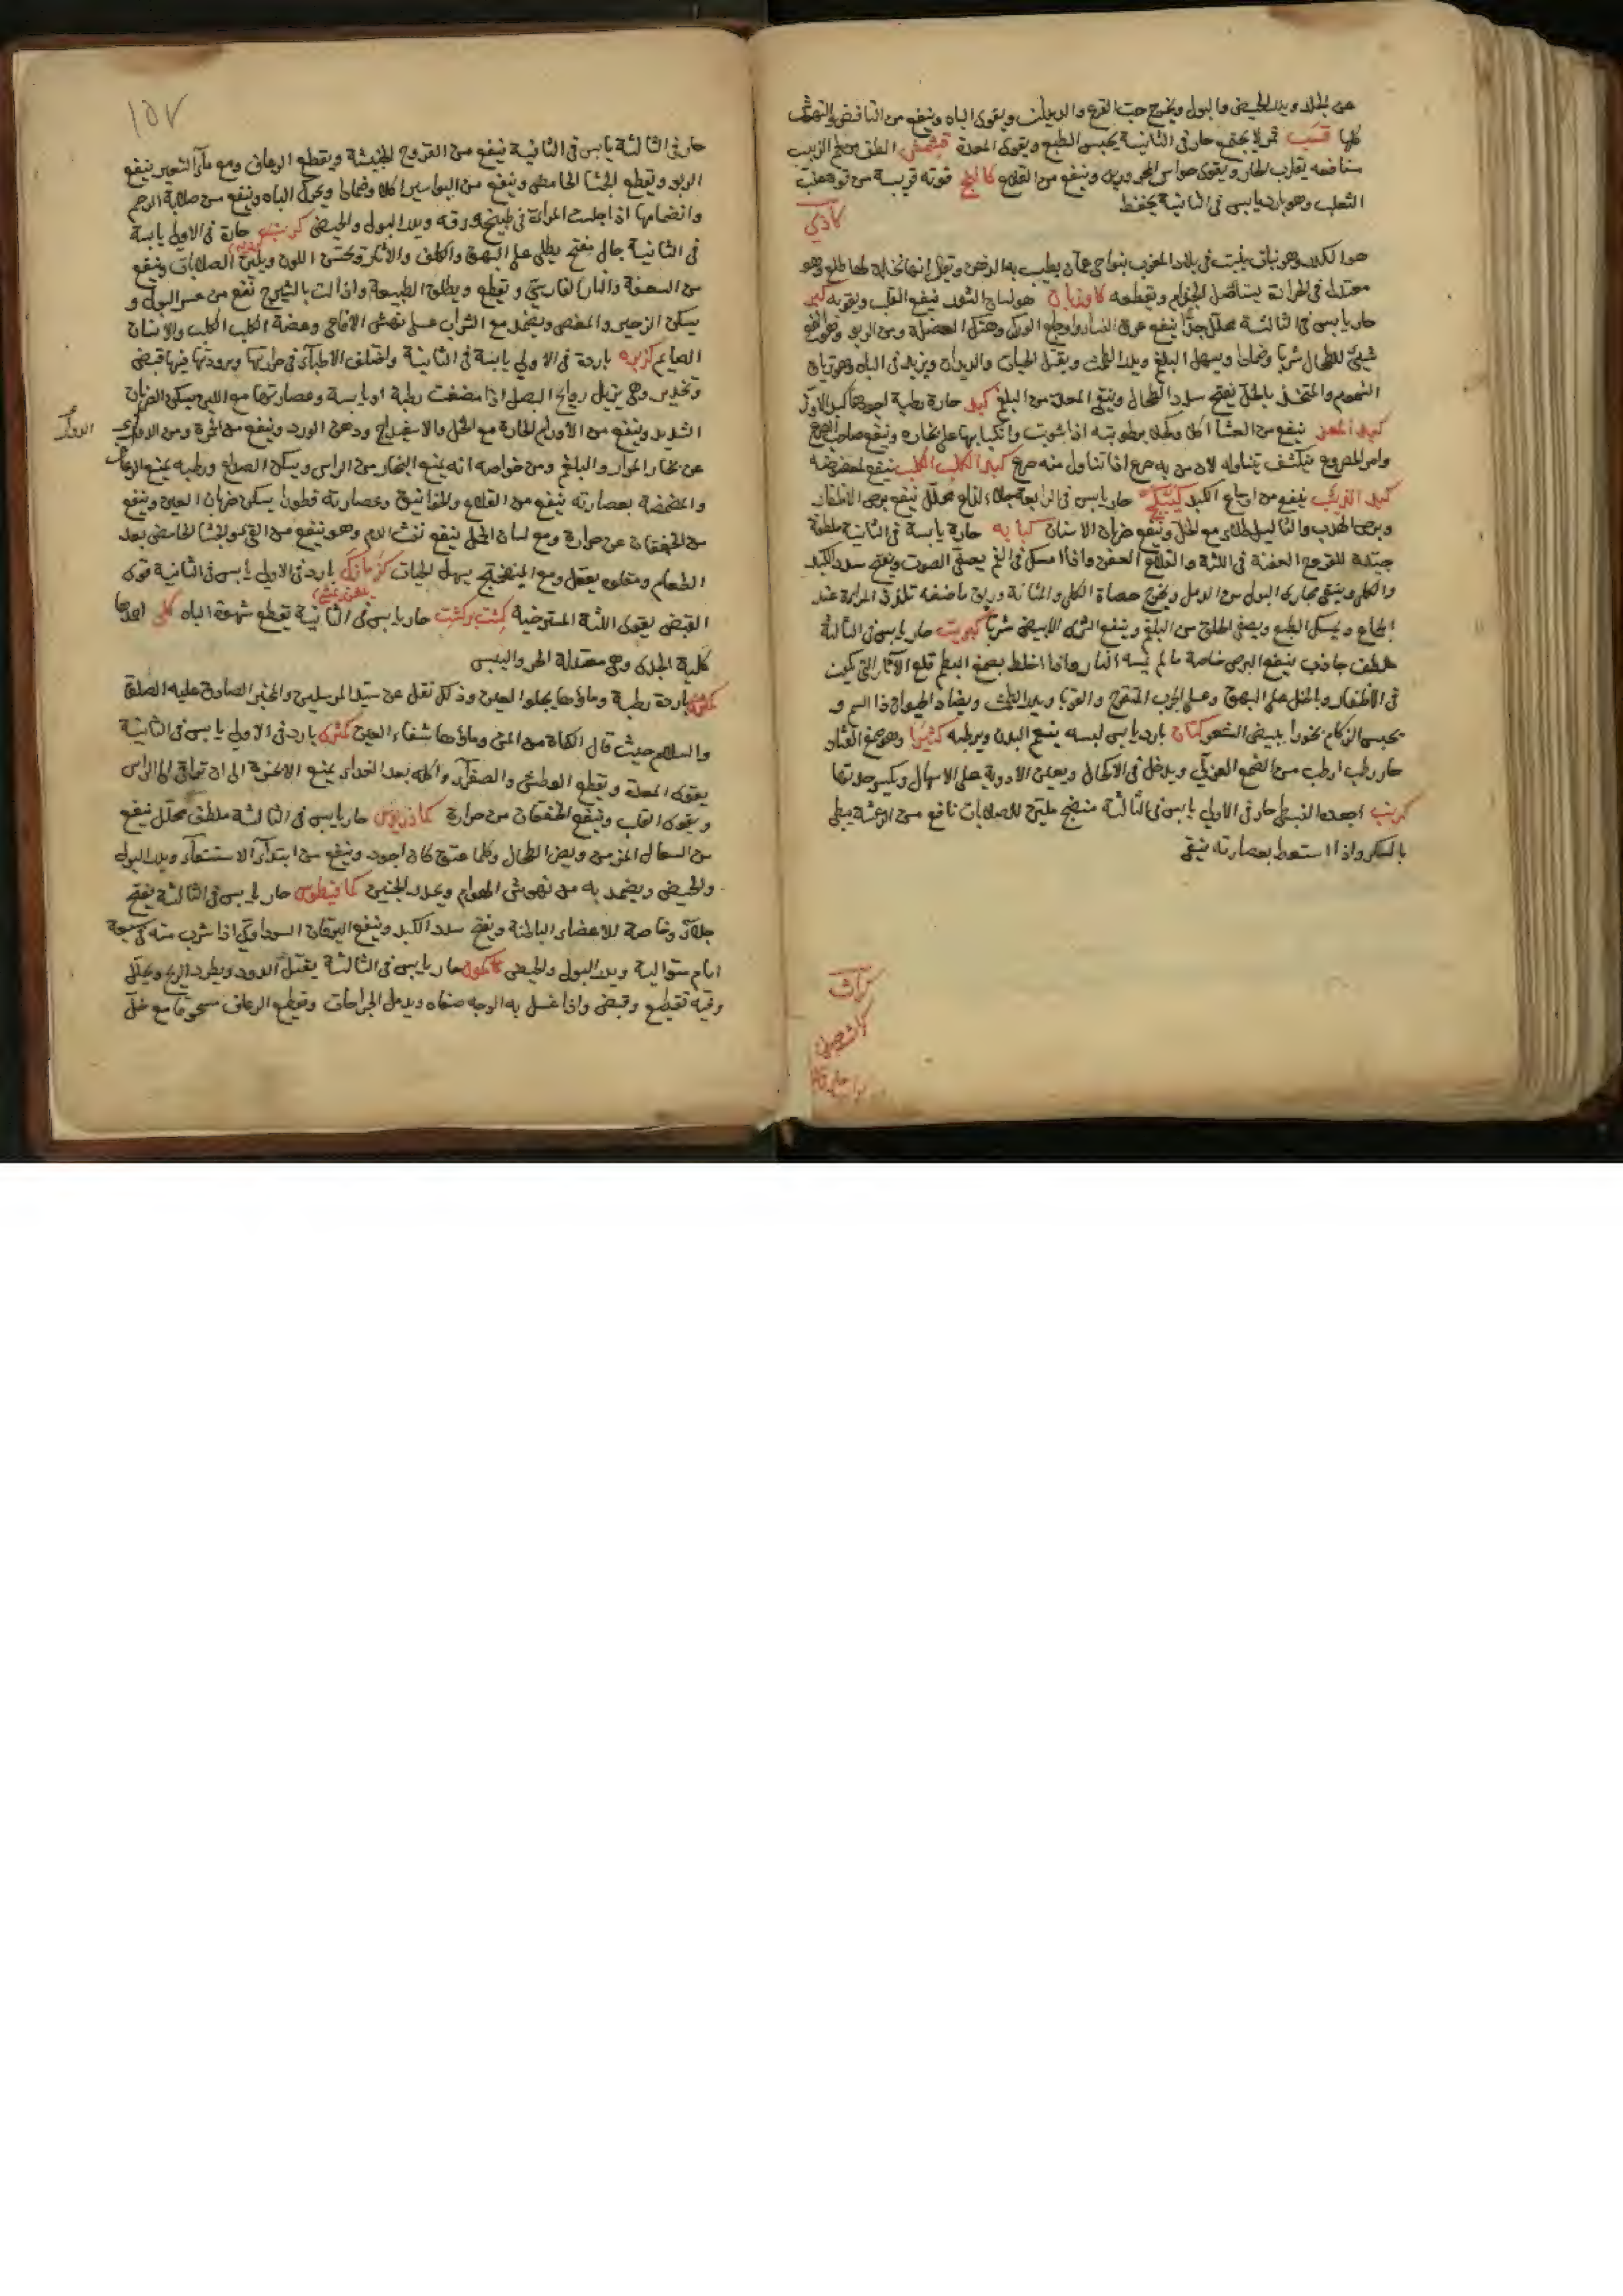 عن الجلد ويدر الحيض والبول ويخرج حب القرع والديدان ويقوى الباه وينفع من النافض والنهوش
كلها قسب تمر لا يجتمع حار فى الثانية يحبس الطبع ويقوى المعدة قشمش الطف من الزبيب
منافعه يقارب الحار ويقوى حواس المحرورين وينفع من القلاع كاكنج قوته قريبة من قوة عنب
الثعلب وهو بارد يابس فى الثانية يحفظ
كاذي
هو الكدر وهو نبات ينبت فى بلاد العرب بنواحى عمان يطيب به الدهن ويقال انها نخلة لها طلع وهو
معتدل فى الحرارة يستأصل الجذام ويقطعه كاوزبان هو لسان الثور ينفع القلب ويقويه كبر
حار يابس فى الثالثة محلل جدا ينفع عرق النسا واوجاع الورك وهتك العضلة ومن الربو وهو انفع
شئ للطحال شربا وضمادا ويسهل البلغم ويدر الطمث ويقتل الحيات والديدان ويزيد فى الباه وهو ترياق
السموم والمتخذ بالخل يفتح سدد الطحال وينقى المعدة من البلغم كبد حارة رطبة اجودها كبد الاوز
كبد المعز ينفع من العشا اكلا وكحلا برطوبته اذا شويت وانكبابها على بخاره وينفع صاحب الصرع
وامر المصروع ينكشف بتناوله لان من به صرع اذا تناول منه صرع كبد الكلب الكلب ينفع لمن عضه
كبد الذئب ينفع من اوجاع الكبد كبيكج حار يابس فى الرابعة جلاء لذاع محلل ينفع برص الاظفار
وبرص البدن والثآليل طلاء مع الخل وينفع ضربان الاسنان كبابه حارة يابسة فى الثانية ملطفة
جيدة للقروح العفنة فى اللثة والقلاع العفن واذا امسك فى الفم يصفى الصوت ويفتح سدد الكبد
والكلى وينقى مجارى البول من الرمل ويخرج حصاة الكلى والمثانة وريق ماضغه تلذذ المراة عند
الجماع ويمسك الطبع ويصفى الحلق من البلغم وينفع الشرى الابيض شربا كبريت حار يابس فى الثالثة
ملطف جاذب ينفع البرص خاصة ما لم يمسه النار واذا اخلط بصمغ البطم قلع الآثار التى تكون
فى الاظفار وبالخل على البهق وعلى الجرب المتقرح والقوبا ويدر الطمث ويضاد الحيوان ذا السم و
يحبس الزكام بخورا يبيض الشعر كتان بارد يابس لبسه ينعم البدن ويرطبه كثيرا وهو صمغ القتاد
حار رطب ارطب من الصمغ العربى ويدخل فى الاكحال ويعين الادوية على الاسهال ويكسر حدتها
كرنب اجوده النبطى حار فى الاولى يابس فى الثالثة منضج ملين للصلابات نافع من الرعشة يبطى
بالسكر واذا استعط بعصارته ينقى
كراث
كاشم

١٥٧
حار فى الثالثة يابس فى الثانية ينفع من القروح الخبيثة ويقطع الرعاف ومع مآء الشعير ينفع
الربو ويقطع الجشا الحامض وينفع من البواسير اكلا وضمادا ويحرك الباه وينفع من صلابة الرحم
وانضمامها اذا جلست المراة فى طبيخ ورقه ويدر البول والحيض كرسنه حارة فى الاولى يابسة
فى الثانية جال مفتح يطلى على البهق والكلف والآثار ويحسن اللون ويلين الصلابات وينفع
من السعفة والنار الفارسى ويقطع ويطلق الطبيعة واذا لت بالشيرج نفع من عسر البول و
يسكن الزحير والمغص ويضمد مع الشراب على نهش الافاعى وعضة الكلب الكلب والانسان
الصايم كزبره باردة فى الاولى يابسة فى الثانية واختلف الاطبآء فى حرارتها وبرودتها فيها قبض
وتخدير وهى يزيل روايح البصل اذا مضغت رطبة او يابسة وعصارتها مع اللبن يسكن الضربان
الشديد وينفع من الاورام الحارة مع الخل والاسفيداج ودهن الورد وينفع من الحمرة ومن الدوار
الدوار
عن بخار المرار والبلغم ومن خواصه انه يمنع البخار من الراس ويسكن الصداع ورطبه يمنع الرعاف
والمضمضة بعصارته ينفع من القلاع والخوانيق وعصارته قطورا يسكن ضربان العين وينفع
من الخفقان عن حرارة ومع لسان الحمل ينفع نفث الدم وهو ينفع من القئ والجشا الحامض بعد
الطعام ومقلوه يعقل ومع الميفختج يسهل الحيات كزمازك بارد فى الاولى يابس فى الثانية قوى
القبض يقوى اللثة المسترخية كشت بركشت حار يابس فى الثانية يقطع شهوة الباه كلى اجودها
كلية الجدى وهى معتدلة الحر واليبس
كمأة باردة رطبة وماؤها يجلوا العين وذلك نقل عن سيد المرسلين والمخبر الصادق عليه الصلوة
والسلام حيث قال الكمأة من المن وماؤها شفاء العين كمثرى بارد فى الاولى يابس فى الثانية
يقوى المعدة ويقطع العطش والصفرآء واكله بعد الغداء يمنع الابخرة الى ان تتراقى الى الراس
ويقوى القلب وينفع الخفقان من حرارة كماذريوس حار يابس فى الثالثة ملطف محلل ينفع
من السعال المزمن ويض الطحال وكلما عتق كان اجود وينفع من ابتدآء الاستسقآء ويدر البول
والحيض ويضمد به من نهوش الهوام ويحدر الجنين كمافيطوس حار يابس فى الثالثة يفتح
جلآء وخاصة للاعضاء الباطنة ويفتح سدد الكبد وينفع اليرقان السوداوى اذا شرب منه فى سبعة
ايام متوالية ويدر البول والحيض كاكول حار يابس فى الثالثة يقتل الدود ويطرد الريح ويحلل
وفيه تقطيع وقبض واذا غسل به الوجه صفاه ويدمل الجراحات ويقطع الرعاف مسحوقا مع خل